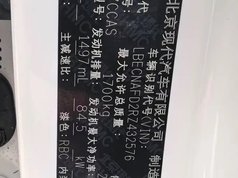 北京现代汽车有限公司
车辆识别代号(VIN): 制造
LBECNAFD2RZ432576
最大允许总质量:
CCCAS 1700kg
号: 发动机排量: 发动机最大净功率:
1497mL 84.5 kW
主减速比:
漆色: RBC 内